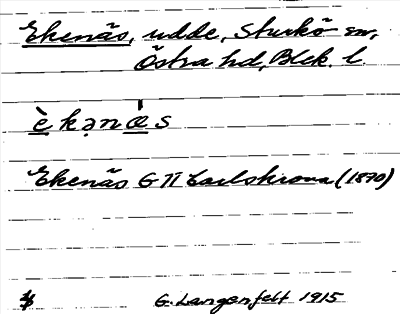 Ekenäs, udde, Sturkö sn,
Östra hd, Blek. l.
èkənæs
Ekenäs GTI Carlskrona (1870)
G. Langenfelt 1915